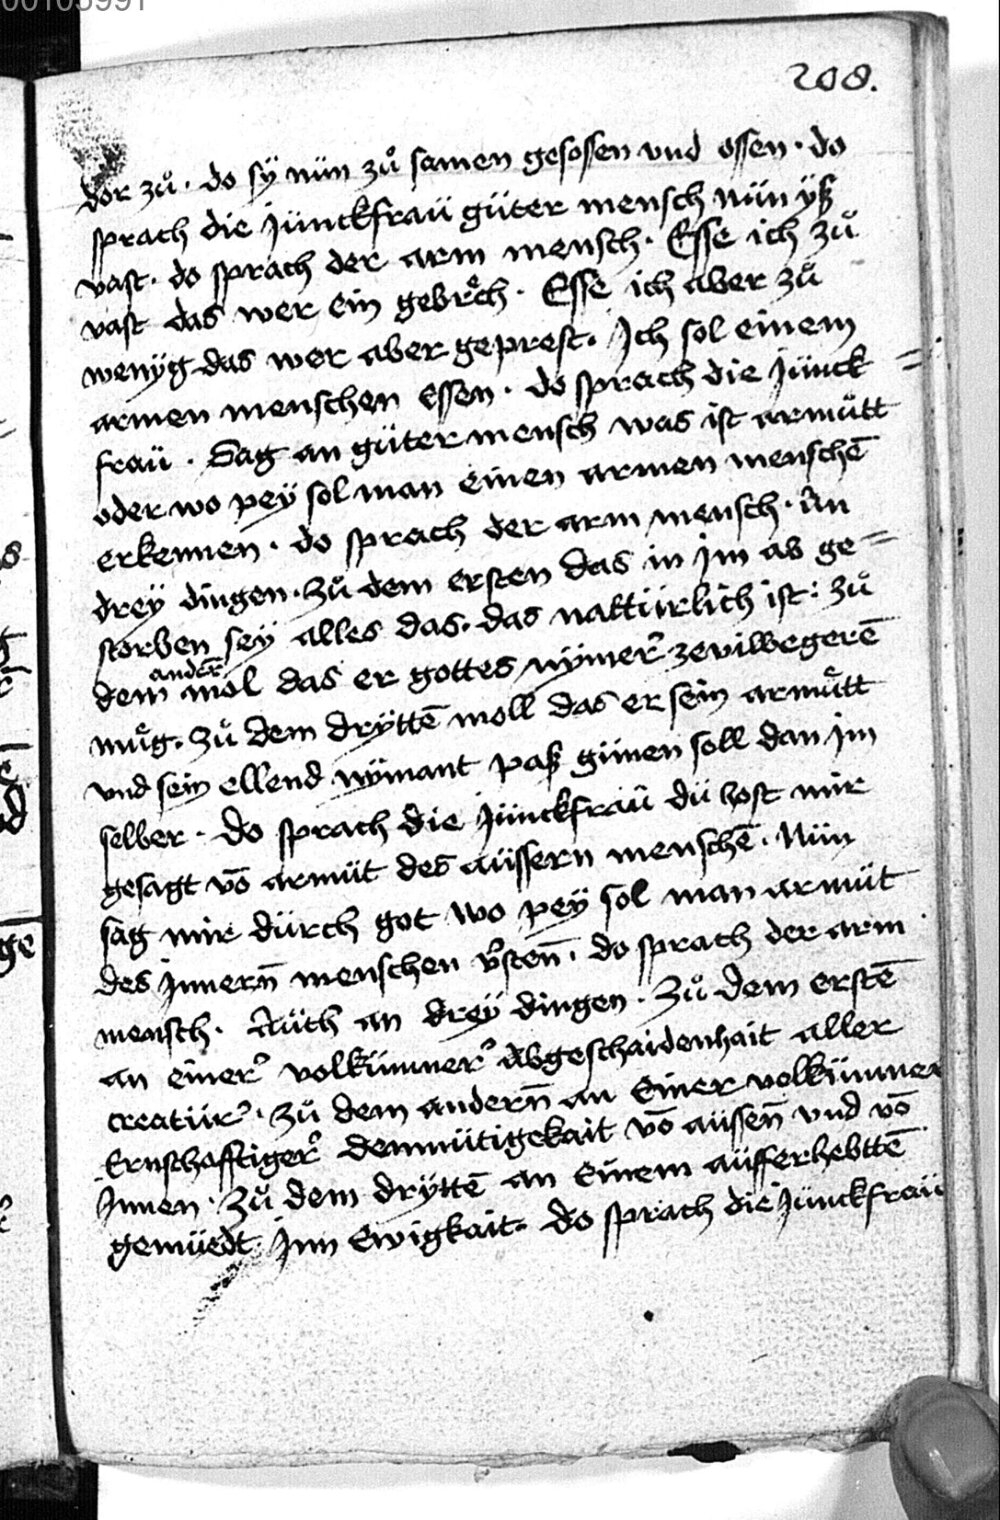 00103991
208.
dor zů · do sÿ nün zů samen gesossen vnd ossen · do
sprach die Jünckfraü güter mensch nün yß
vast · do sprach der arm mensch · Esse ich zů
vast das wer ein gebrech · Esse ich aber zů
wenÿg das wer aber geprest · Jch sol einem
armen menschen essen · do sprach die Jünck=
fraü · Sag an güter mensch was ist armůtt
oder wo peÿ sol man einen armen menschē
erkennen · do sprach der arm mensch · An
dreÿ dingen · zů dem ersten das in jm ab ge=
storben seÿ alles das · das nattürlich ist : zů
dem andern mol das er gottes nÿmer zevilwegerē
můg · zů dem drÿttē moll das er sein armůtt
vnd sein ellend nÿmant paß günen soll dan jm
selber · do sprach die Jünckfraü dü host mir
gesagt vō armüt des aüssern menschē · Nün
sag mir dürch got wo peÿ sol man armüt
des Jnnern̄ menschen v̉sten̄ · do sprach der arm
mensch · Aüch an dreÿ dingen · zů dem erstē
an einer volkümner abgeschaidenhait aller
creatür · zů dem andern̄ an Einer volkümner
Ernschafftiger demmütigekait vō aüssen̄ vnd vō
Jnnen · zů dem drÿttē an einem aüfferhebttē
gemüedt jnn Ewigkait · do sprach die Jünckfraü